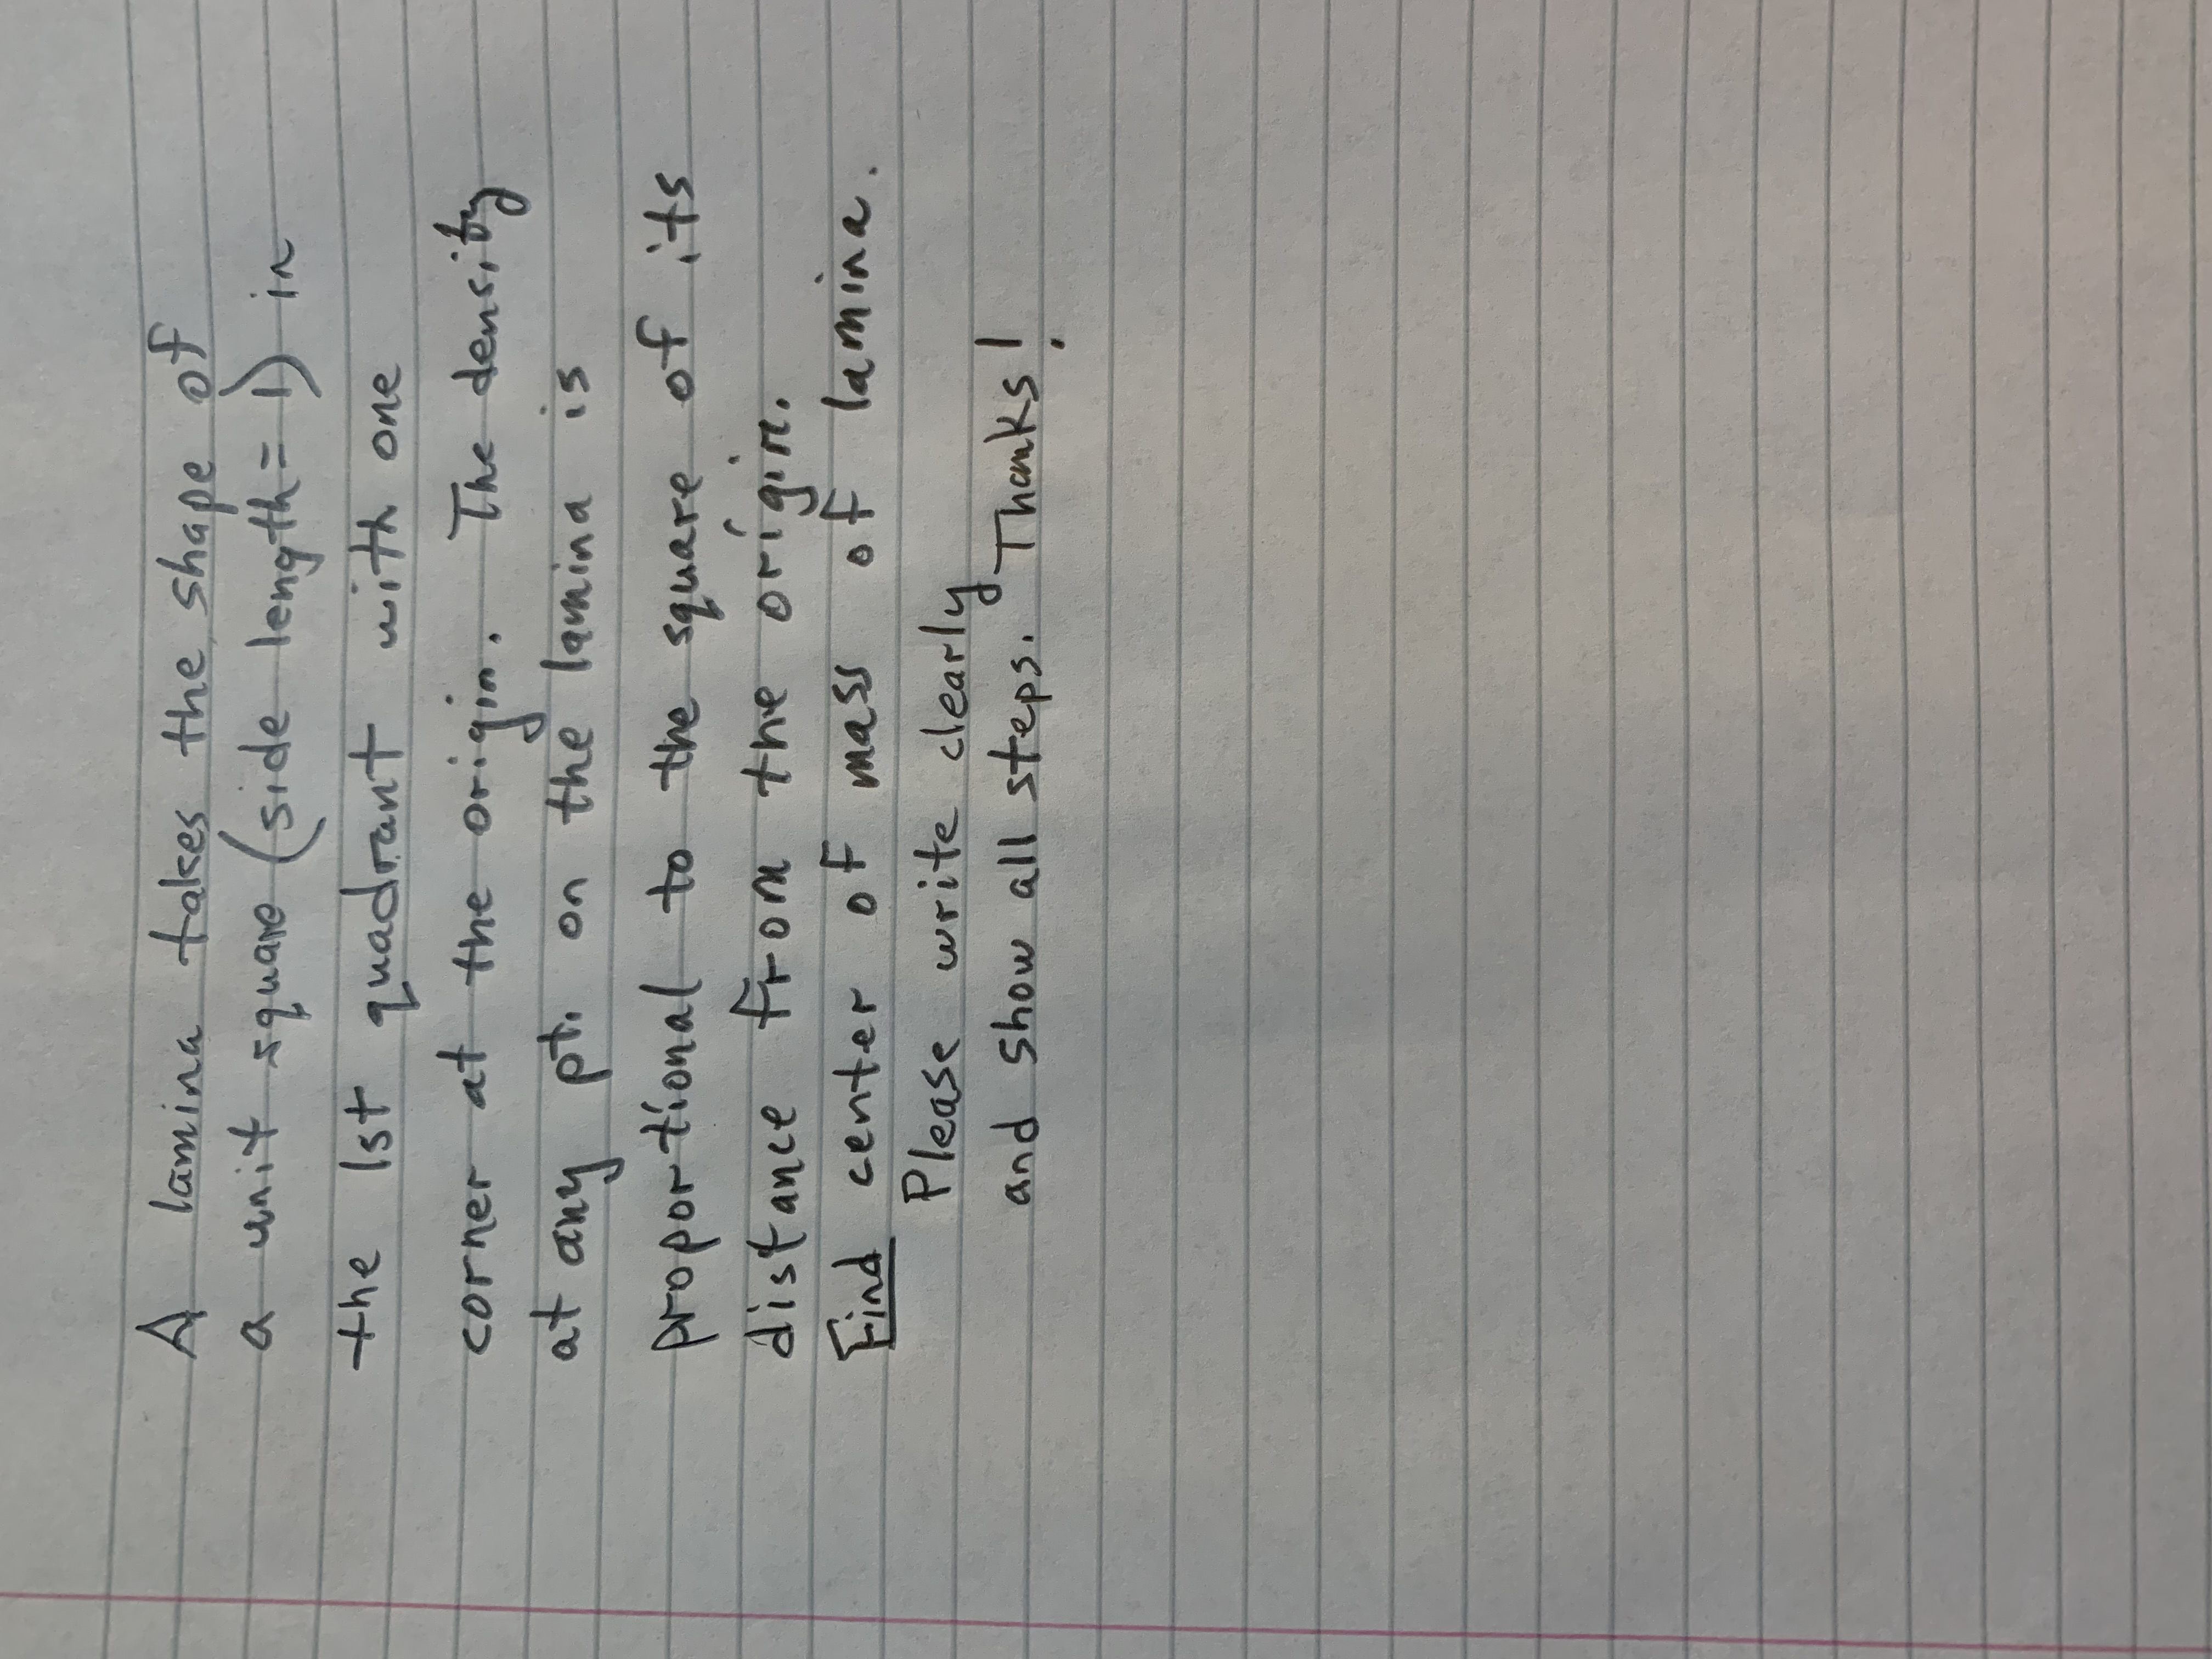 A lamina takes the shape of
a unit square (side length = 1) in
the 1st quadrant with one
corner at the origin. The density
at any pt. on the lamina is
proportional to the square of its
distance from the origin.
Find center of mass of lamina.
Please write clearly
and show all steps. Thanks!